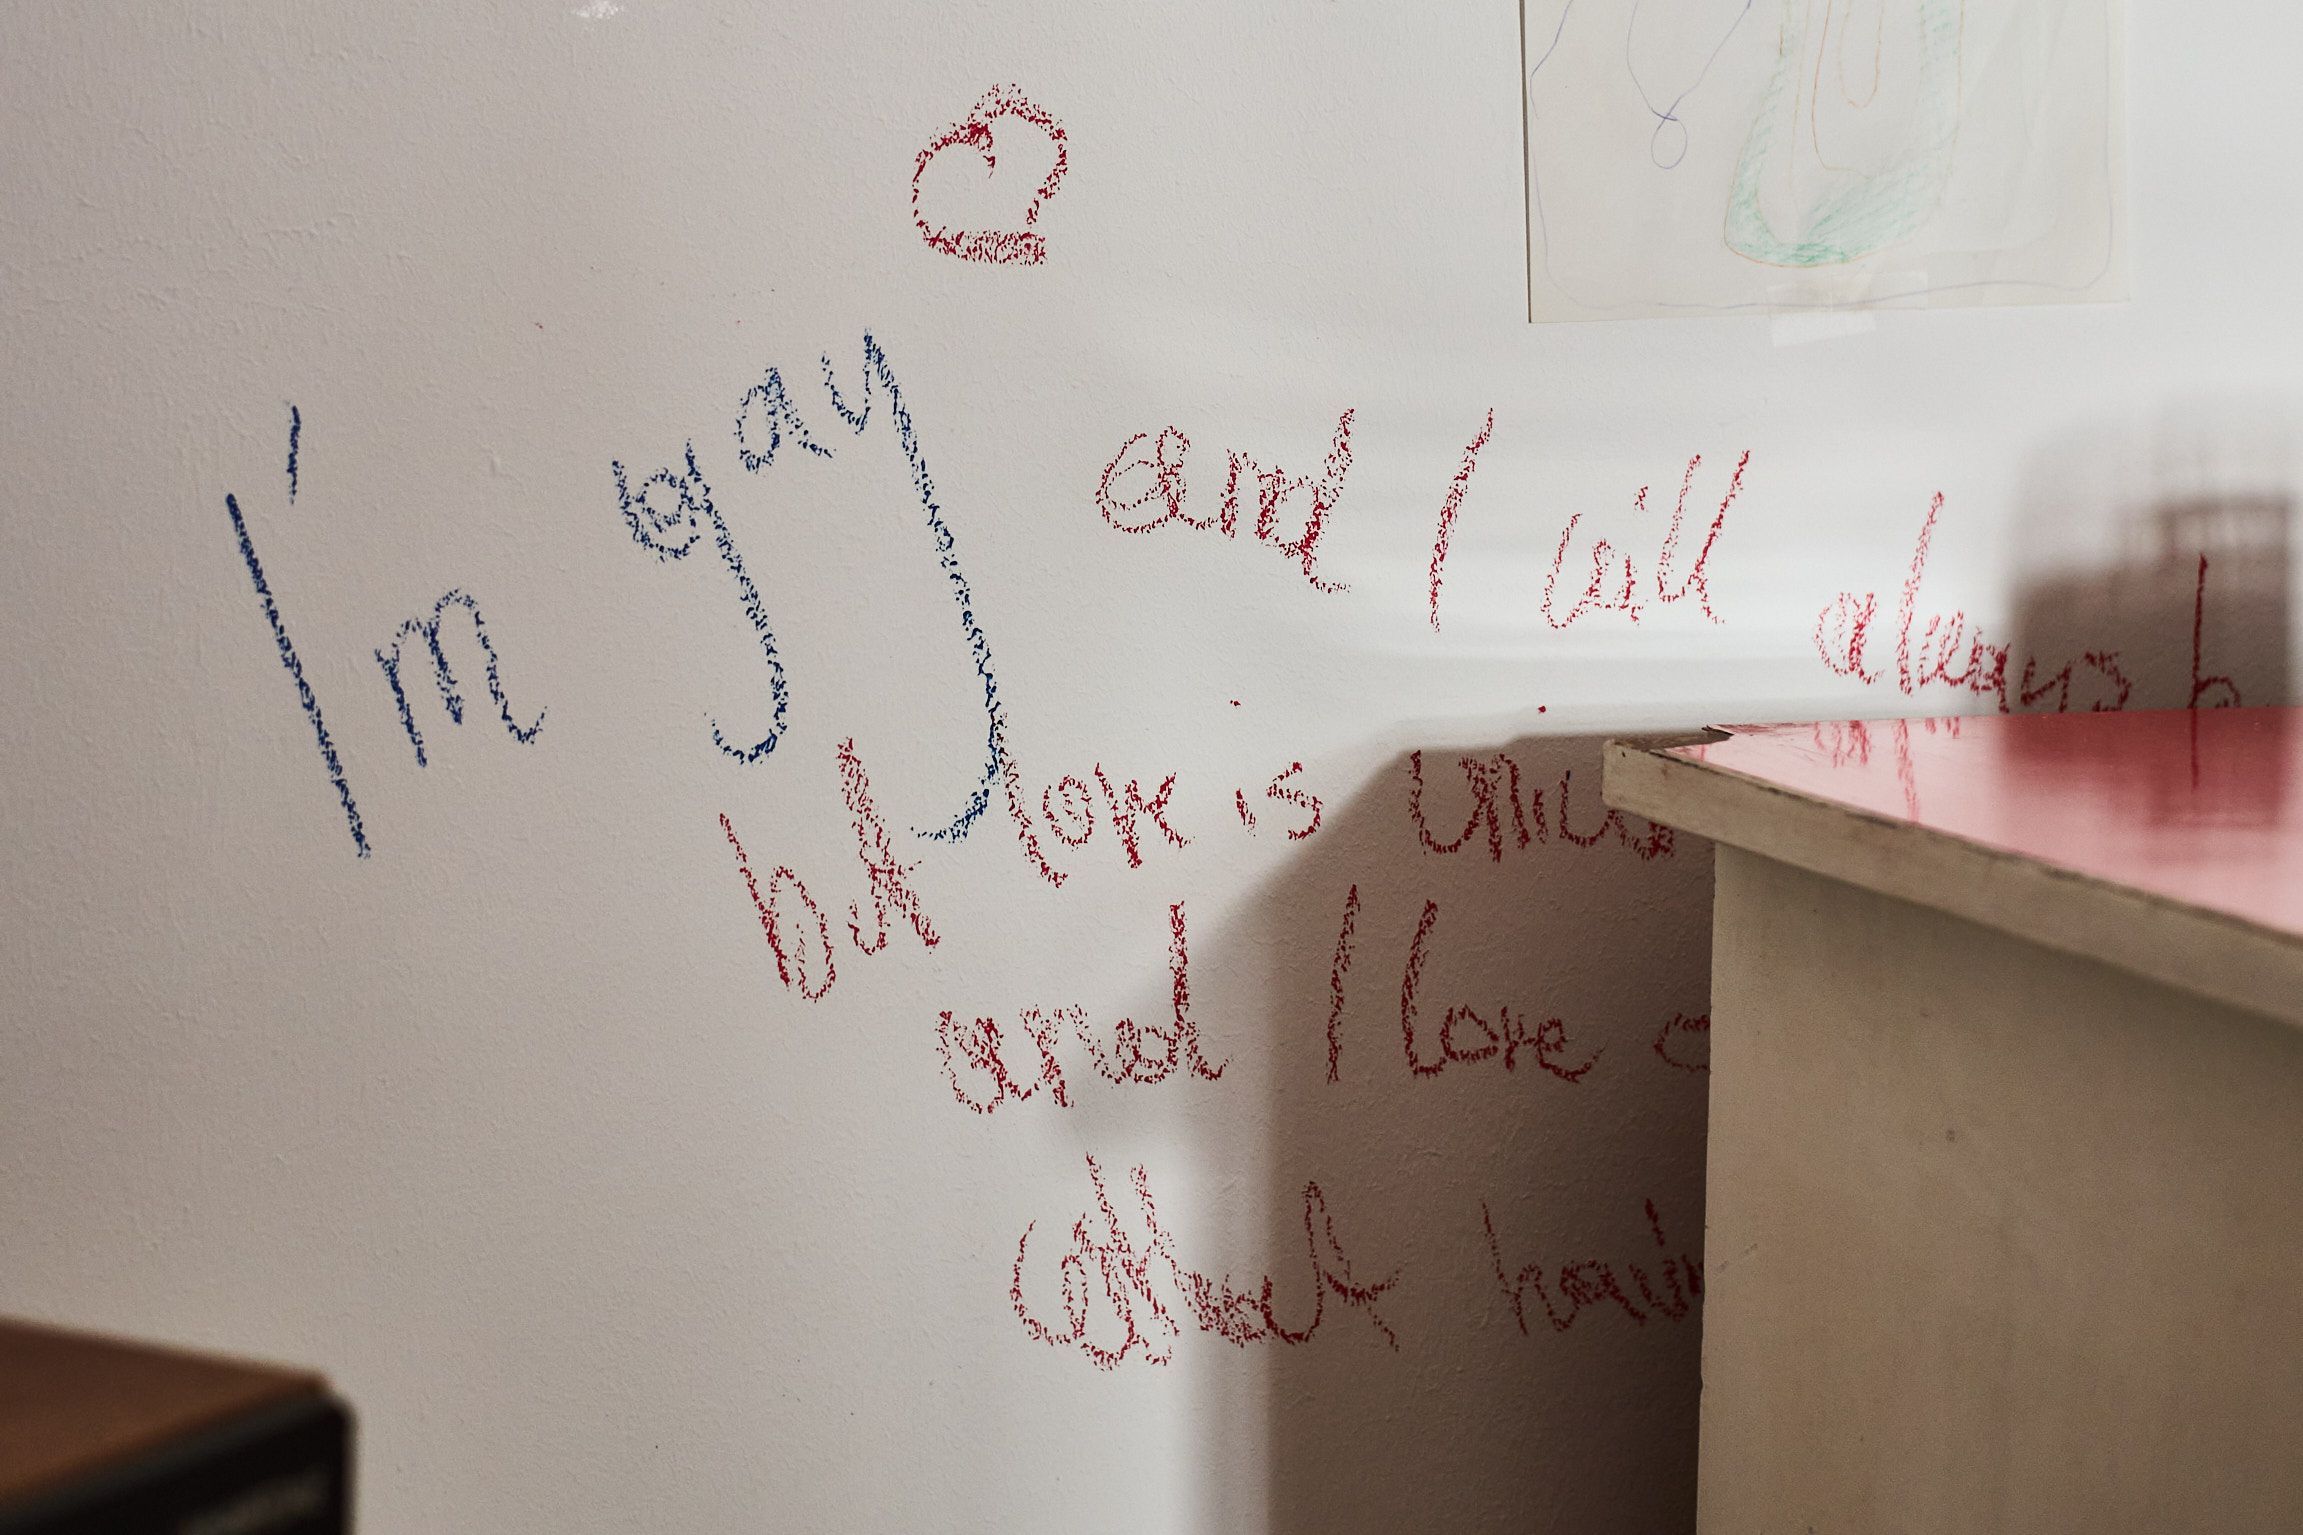 I'm gay
and I will always b
but is
and I love
without havi